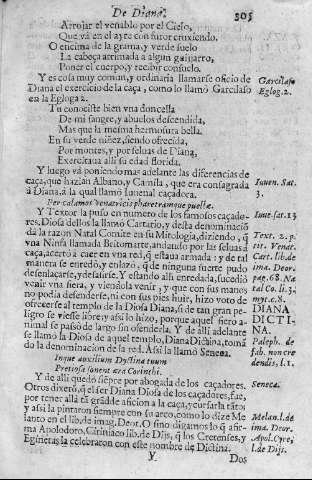 De Diana. 305
Arrojar el venablo por el Cieso,
Que vá en el ayre con furor cruxiendo.
O encima de la grama, y verde suelo
La cabeça arrimada a algun guijarro,
Poner el cuerpo, y recibir consuelo.
Y es cosa muy comun, y ordinaria llamarse oficio de
Diana el exercicio de la caça, como lo llamó Garcilaso
en la Egloga 2.
Garcilaso
Eglog. 2.
Tu conociste bien vna doncella
De mi sangre, y abuelos descendida,
Mas que la mesma hermosura bella.
En su verde niñez, siendo ofrecida,
Por montes, y por seluas de Diana,
Exercitaua allí su edad florida.
Y luego vá poniendo mas adelante las diferencias de
caça, que hazian Albano, y Camila, que era consagrada
á Diana, á la qual llamó Iuuenal caçadora.
Iuuen. Sat.
3.
Per calamos venatricis pharetramque puellæ.
Y Textor la puso en numero de los famosos caçado-
res. Dellos la llamó Cartario, y desta denominació
dá la razon Natal Comite en su Mitologia, diziendo, q̃
vna Ninfa llamada Britomarte, andando por las seluas á
caça, acertó a caer en vna red, q̃ estaua armada: y de tal
manera se enredó, y enlazó, q̃ de ninguna suerte pudo
desenlaçarse, y desasirse. Y estando alli enredada, sucedió
venir vna fiera, y viendola venir, y que con sus manos
no podia defenderse, ni con sus pies huir, hizo voto de
ofrecerse al templo de la Diosa Diana, si de tan gran pe-
ligro se viesse libre: y assi lo hizo, porque aquel fiero a-
nimal se pasó de largo sin ofenderla. Y de allí adelante
se llamó la Diosa de aquel templo, Diana Dictina, tomá
do la denominacion de la red. Assi la llamó Seneca.
Iuue. sat. 13
Text. 2. p.
Cart. lib. de
ima. Deor.
pag. 68. Na
tal Co. li. 3.
myt. c. 8.
DIANA
DICTI-
NA.
Paleph. de
fab. non cre
dendis, l. 1.
Inque auxilium Dyctina tuum
Pretiosa sonent æra Corinthi.
Y de alli quedó siempre por abogada de los caçadores.
Seneca.
Otros dizen, q̃ el ser Diana Diosa de los caçadores, fue,
por tener allá tã grãde aficion a la caça, y cursarla tãto:
y assi la pintaron siempre con su arco, como lo dize Me
lanto en el lib. de imag. Deor. O sino digamos lo q̃ afir-
ma Apolodoro, Cirinìaco lib. de Dijs, q̃ los Cretenses, y
Eginetas la celebraron con este nombre de Dictina.
Melan. l. de
ima. Deor.
Apol. Cyre,
l. de Dijs.
Y Dos